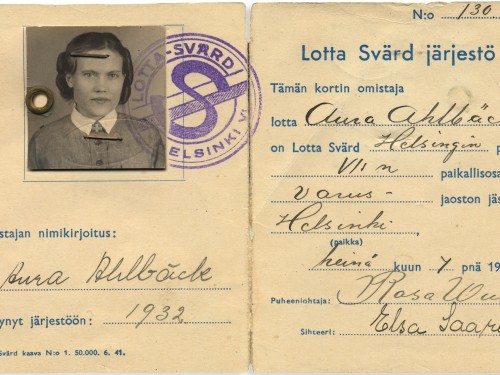 LOTTA-SVÄRD
S
HELSINKI VI
stajan nimikirjoitus:
Aura Ahlbäck
ynyt järjestöön: 1932
Svärd kaava N:o 1. 50.000. 6. 41.
N:o 130.
Lotta Svärd järjestö
Tämän kortin omistaja
lotta Aura Ahlbäc
on Lotta Svärd Helsingin p
VII:n paikallisosa
Varus- jaoston jäs
Helsinki,
(paikka)
heinä kuun 7 pnä 19
Puheenjohtaja: Rosa
Sihteeri: Elsa Saar